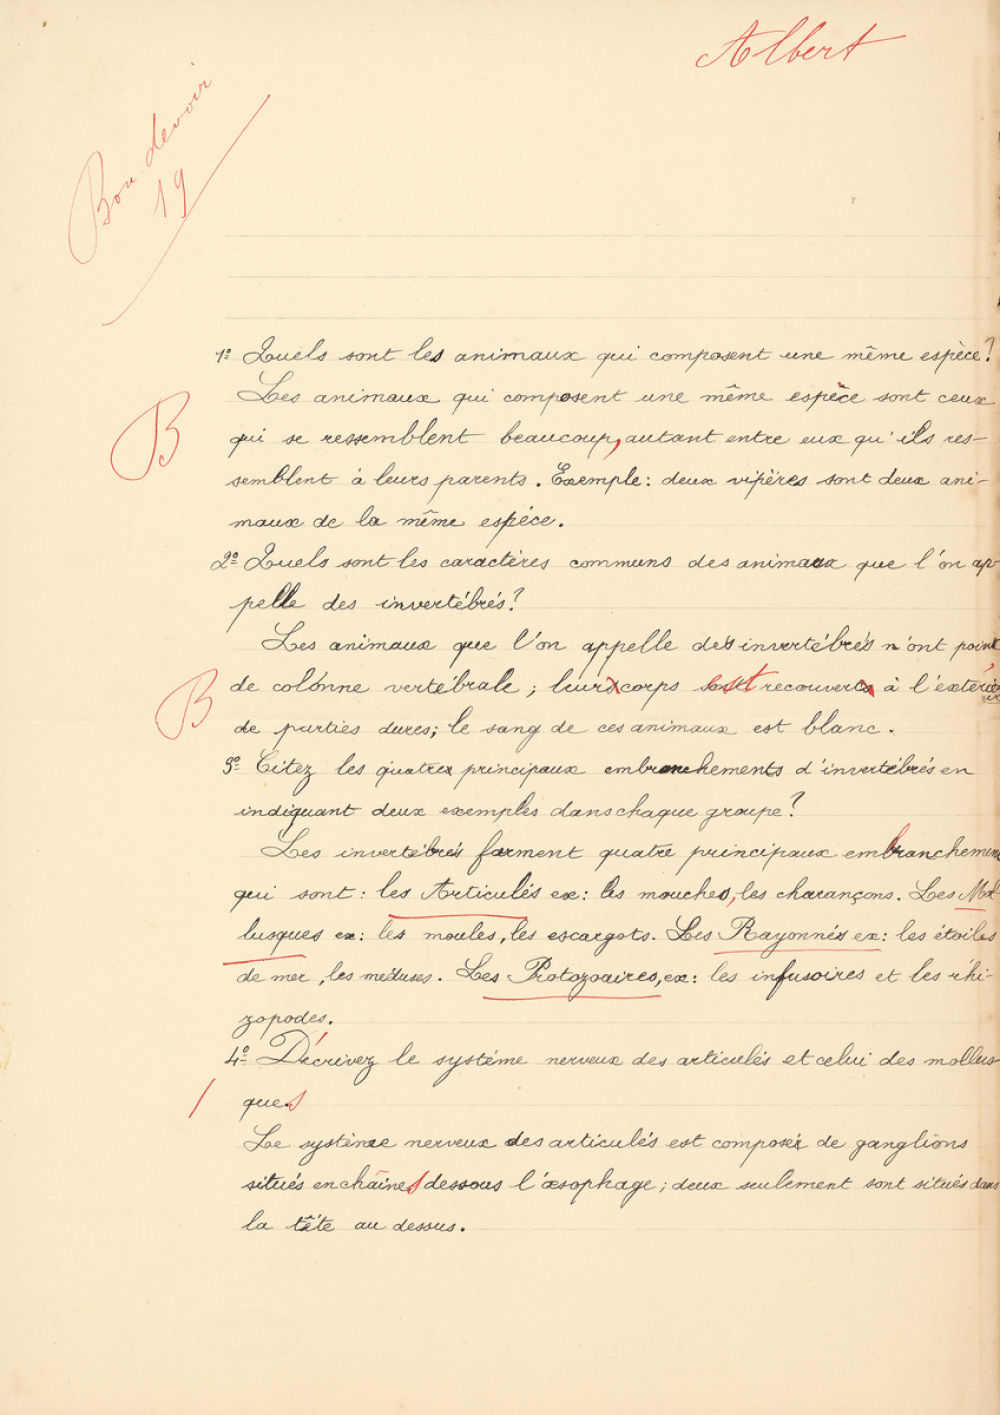 Albert
Bon devoir
19
1º Quels sont les animaux qui composent une même espèce?
Les animaux qui composent une même espèce sont ceux
B
qui se ressemblent beaucoup, autant entre eux qu'ils res-
semblent à leurs parents. Exemple: deux vipères sont deux ani-
maux de la même espèce.
2º Quels sont les caractères communs des animaux que l'on ap-
pelle des invertébrés?
Les animaux que l'on appelle des invertébrés n'ont point
B
de colonne vertébrale; leur corps est recouvert à l'extérieur
de parties dures; le sang de ces animaux est blanc.
3º Citez les quatre principaux embranchements d'invertébrés en
indiquant deux exemples dans chaque groupe?
Les invertébrés forment quatre principaux embranchements
qui sont: les Articulés ex: les mouches, les charançons. Les Mol-
lusques ex: les moules, les escargots. Les Rayonnés ex: les étoiles
de mer, les méduses. Les Protozoaires, ex: les infusoires et les rhi-
zopodes.
4º Décrivez le système nerveux des articulés et celui des mollus-
ques
Le système nerveux des articulés est composé de ganglions
situés en chaîne dessous l'œsophage; deux seulement sont situés dans
la tête au dessus.